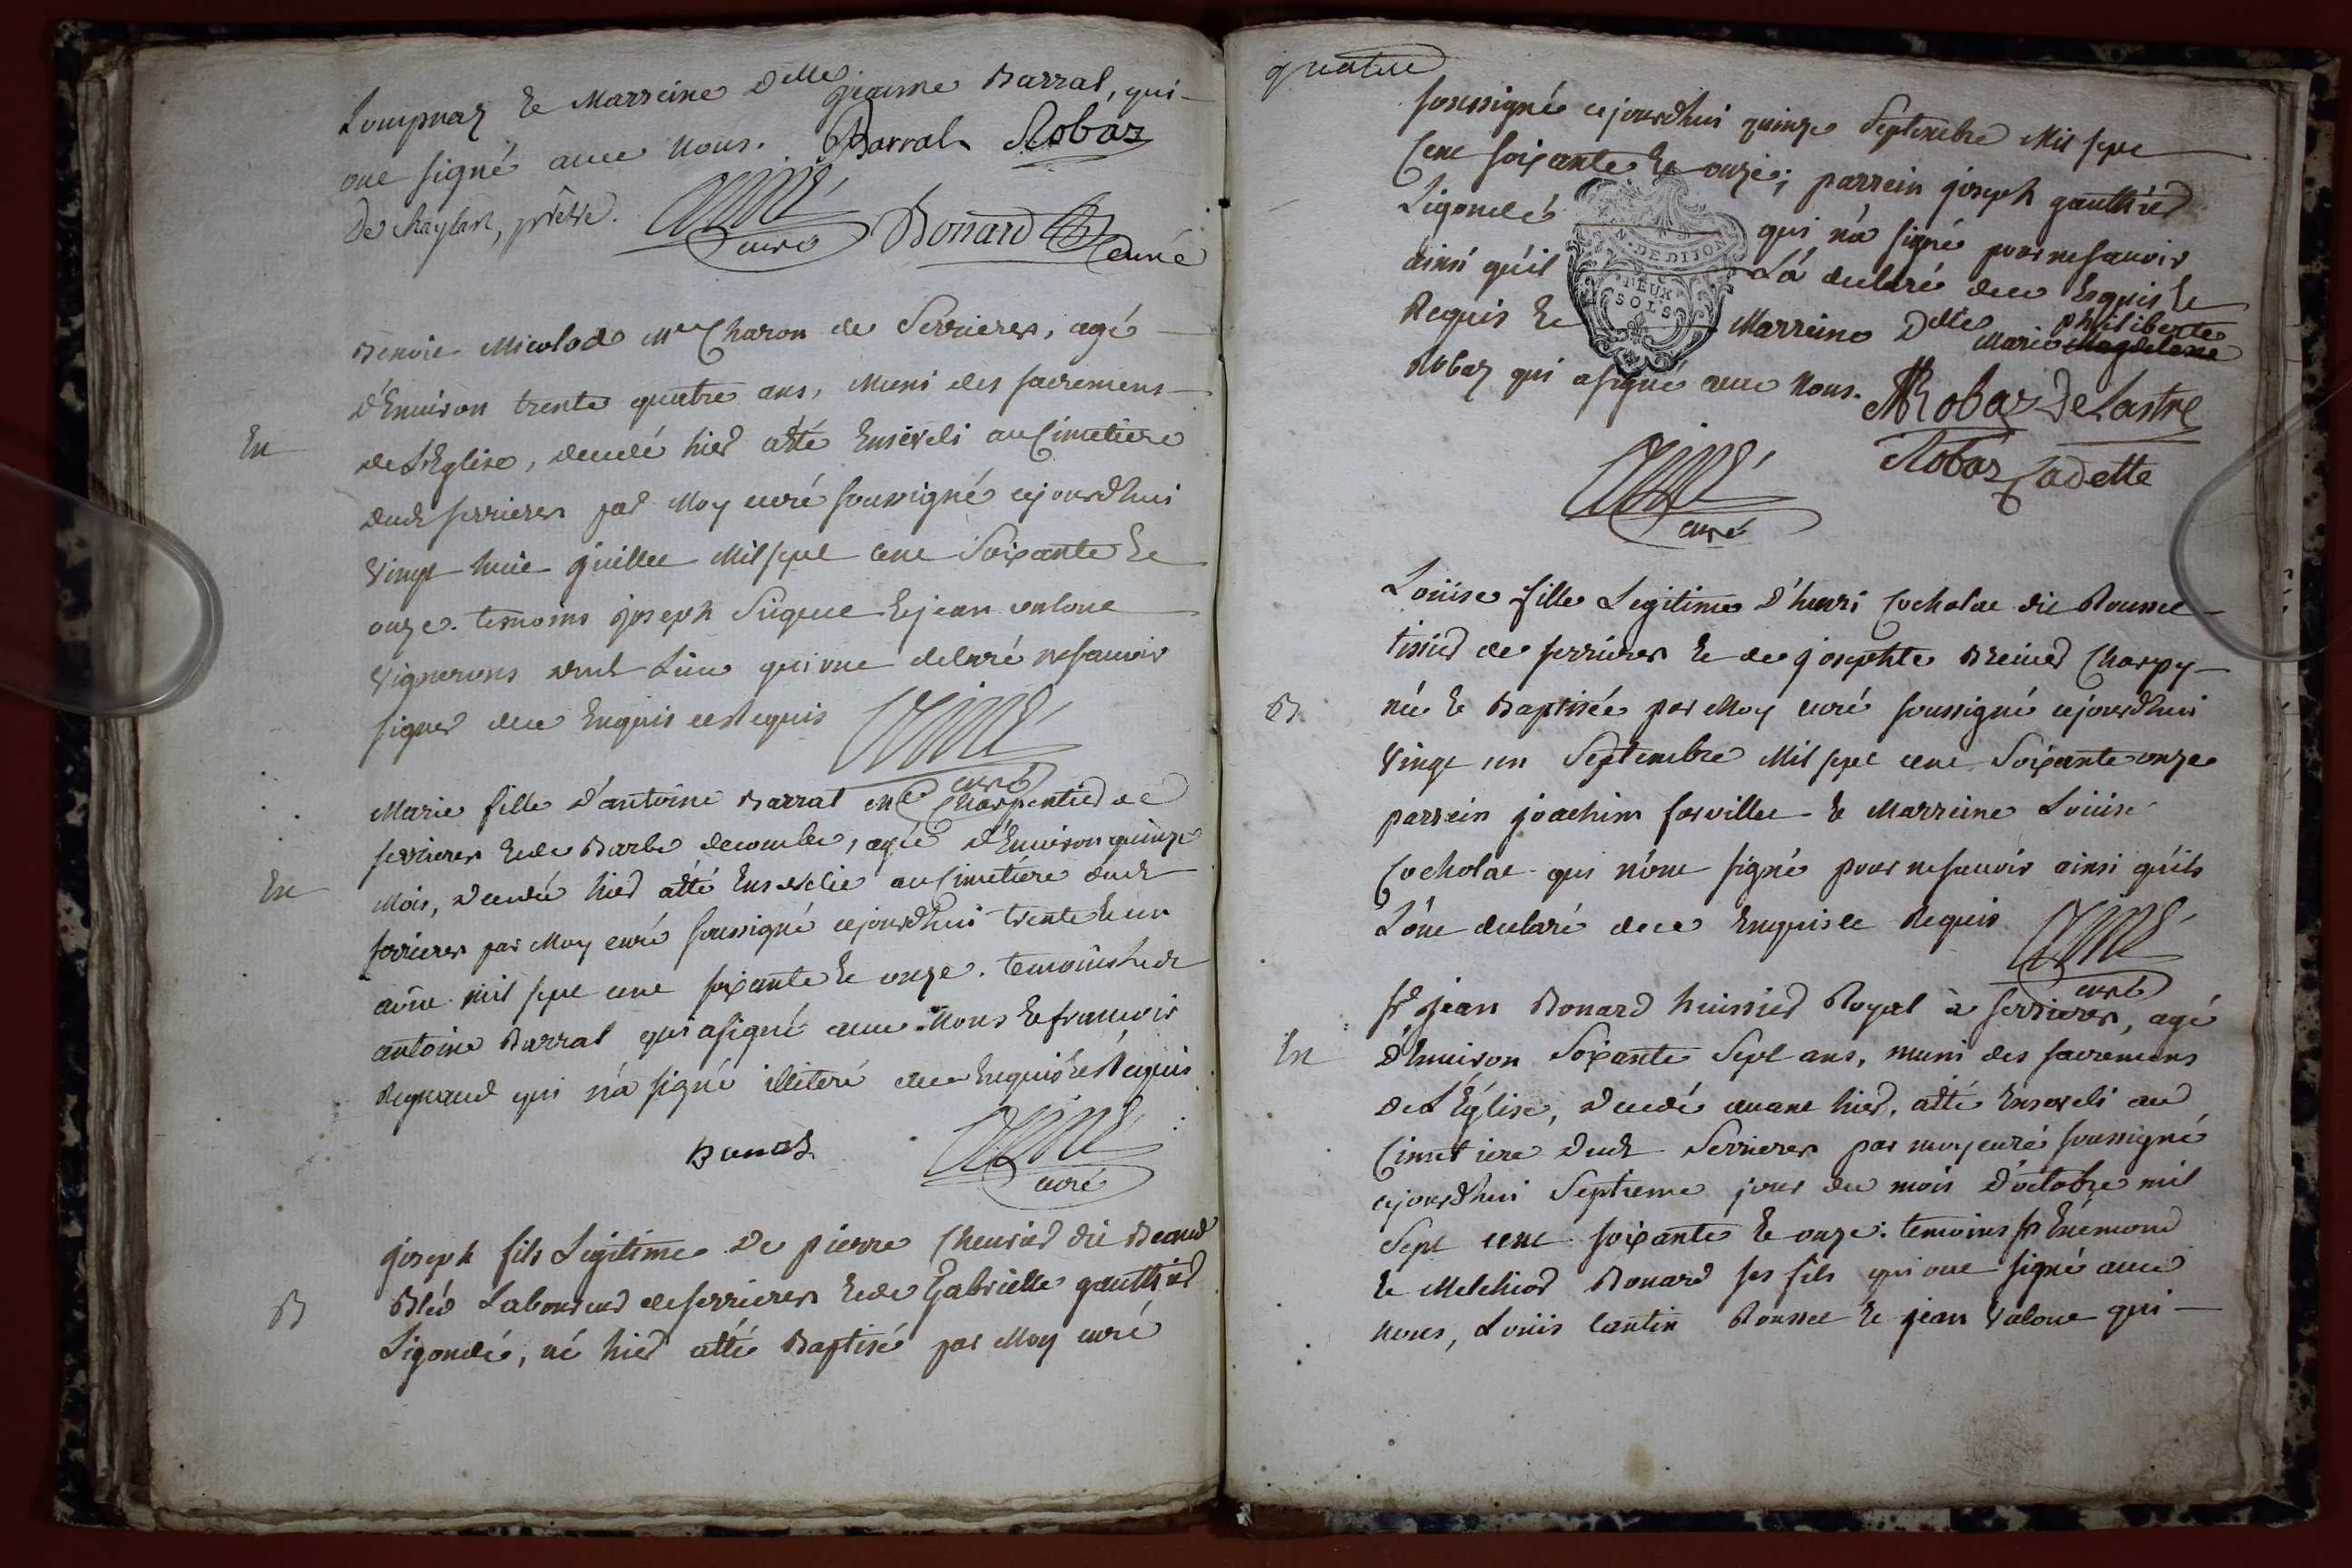 Loupnaz & Marreine Delle jeanne Barral, qui
ont signé avec nous. Barral Robaz
De Chaylan, prêtre. curé Bonard curé
Benoit Micolod Me Charon de Serrieres, agé
d'Environ trente quatre ans, muni des sacremens
En
de L'Eglise, decedé hier a été Enseveli au Cimetiere
dudt serrieres par Moy curé soussigné cejourdhui
vingt huit juillet Mil sept cent Soixante &
onze. temoins joseph & jean valout
vignerons dudt Lieu qui ont declaré ne savoir
signer de ce Enquis et Requis
curé
Marie fille d'antoine Barrat Me Charpentier de
serrieres & de Barbe decombe, agée d'Environ quinze
En
Mois, decedée hier a été Ensevelie au Cimetiere dudt
serrieres par Moy curé soussigné cejourdhui trente & un
aout mil sept cent soixante & onze. temoins ledt
antoine Barrat qui a signé avec Nous & françois
Reynaud qui n'a signé illiteré de ce Enquis & Requis
Barrat
curé
joseph fils Legitime De pierre Chevrier dit Beau
B
Bled Laboureur de serrieres & de Gabrielle gauthier
Ligondé, né hier a été Baptisé par Moy curé
quatre
soussigné cejourdhui quinze Septembre Mil sept
Cent soixante & onze; parrein joseph gauthier
Ligondé qui n'a signé pour ne savoir
ainsi qu'il L'a declaré de ce Enquis &
Requis & Marreine Delle Marie Magdelene philiberte
Robaz qui a signé avec Nous. MRobaz De Lastre
Robaz Cadette
curé
GEN. DE DIJON
DEUX
SOLS
Loüise fille Legitime d'henri Cocholat dit Rousset
tissier de serrieres & de josephte Breinet Charpy
B
née & Baptisée par Moy curé soussigné cejourdhui
vingt un Septembre Mil sept cent Soixante onze
parrein joachim forvillet & Marreine Loüise
Cocholat qui n'ont signé pour ne savoir ainsi qu'ils
L'ont declaré de ce Enquis et Requis
curé
sr jean Bonard huissier Royal à serrieres, agé
En
d'Environ Soixante Sept ans, muni des sacremens
de L'Église, decedé avant hier, a été Enseveli au
Cimetiere dudt Serrieres par moy curé soussigné
cejourdhui Septieme jour du mois d'octobre mil
Sept cent soixante & onze: temoins sr Enémond
& Melchior Bonard ses fils qui ont signé avec
nous, Loüis Cantin Rousset & jean Valout qui